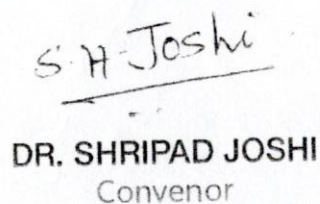 S H Joshi
DR. SHRIPAD JOSHI
Convenor